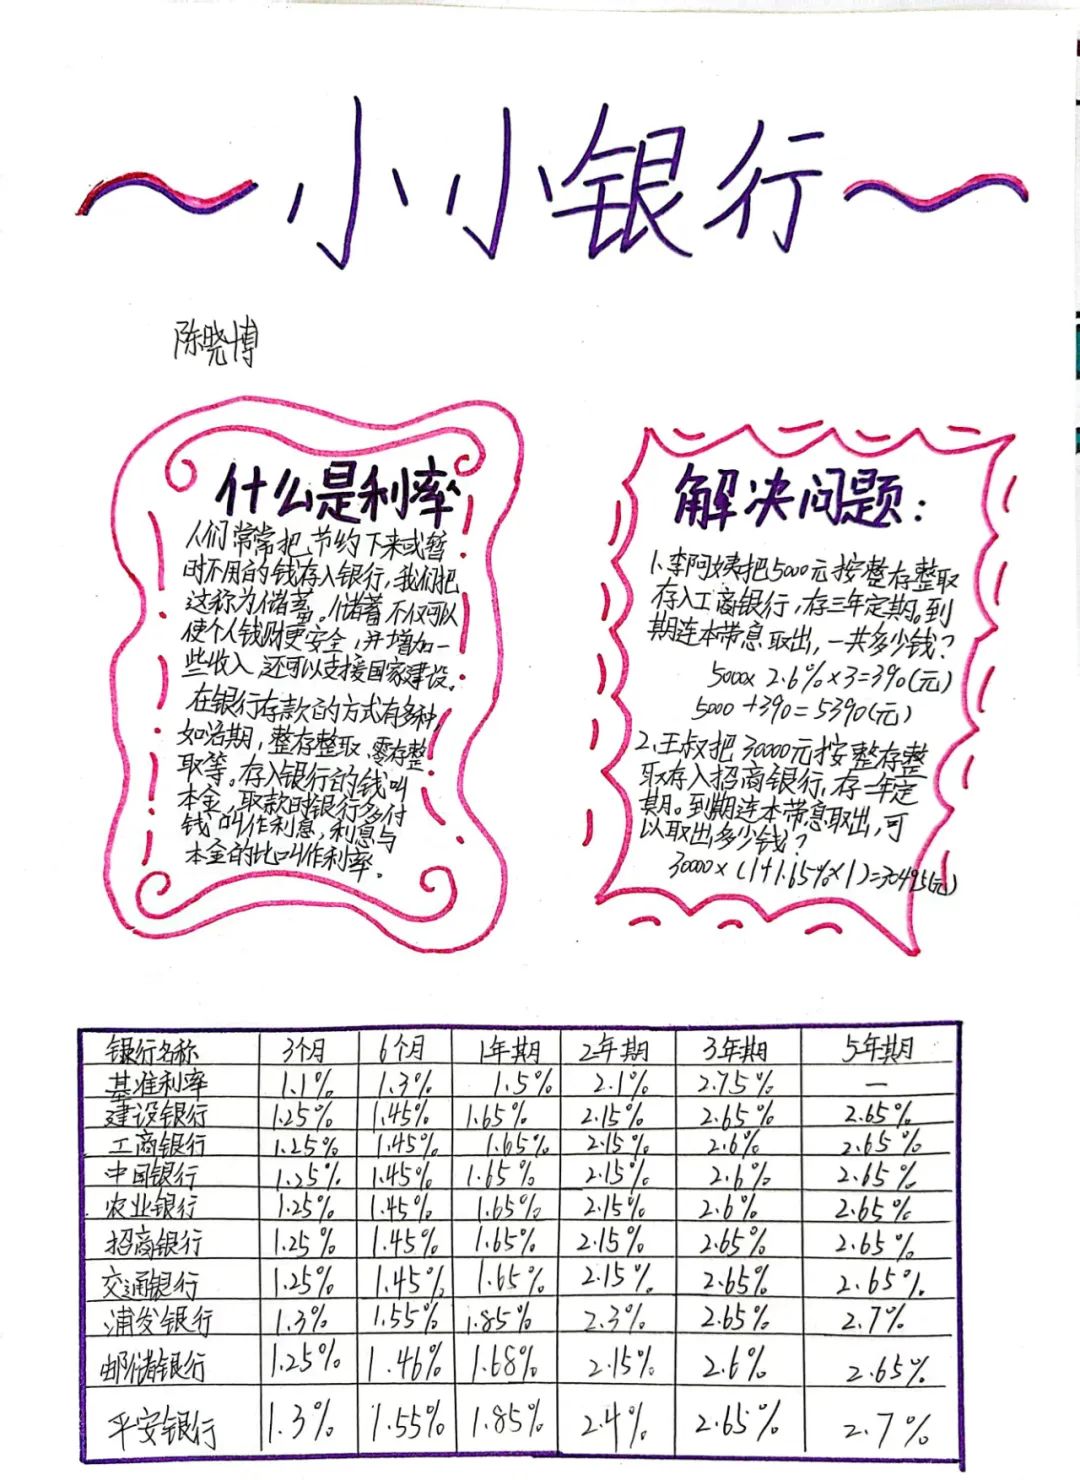 小小银行
陈晓博
什么是利率
人们常常把节约下来或暂
时不用的钱存入银行,我们把
这称为储蓄。储蓄不仅可以
使个人钱财更安全,并增加一
些收入,还可以支援国家建设。
在银行存款的方式有多种,
如活期,整存整取、零存整
取等。存入银行的钱叫
本金,取款时银行多付
钱叫作利息,利息与
本金的比叫作利率.
解决问题:
1.李阿姨把5000元按整存整取
存入工商银行,存三年定期。到
期连本带息取出,一共多少钱?
5000×2.6%×3=390(元)
5000+390=5390(元)
2.王叔把30000元按整存整
取存入招商银行,存一年定
期。到期连本带息取出,可
以取出多少钱?
30000×(1+1.65%×1)=30495(元)
银行名称 3个月 6个月 1年期 2年期 3年期 5年期
基准利率 1.1% 1.3% 1.5% 2.1% 2.75% —
建设银行 1.25% 1.45% 1.65% 2.15% 2.65% 2.65%
工商银行 1.25% 1.45% 1.65% 2.15% 2.6% 2.65%
中国银行 1.25% 1.45% 1.65% 2.15% 2.6% 2.65%
农业银行 1.25% 1.45% 1.65% 2.15% 2.6% 2.65%
招商银行 1.25% 1.45% 1.65% 2.15% 2.65% 2.65%
交通银行 1.25% 1.45% 1.65% 2.15% 2.65% 2.65%
浦发银行 1.3% 1.55% 1.85% 2.3% 2.65% 2.7%
邮储银行 1.25% 1.46% 1.68% 2.15% 2.6% 2.65%
平安银行 1.3% 1.55% 1.85% 2.4% 2.65% 2.7%